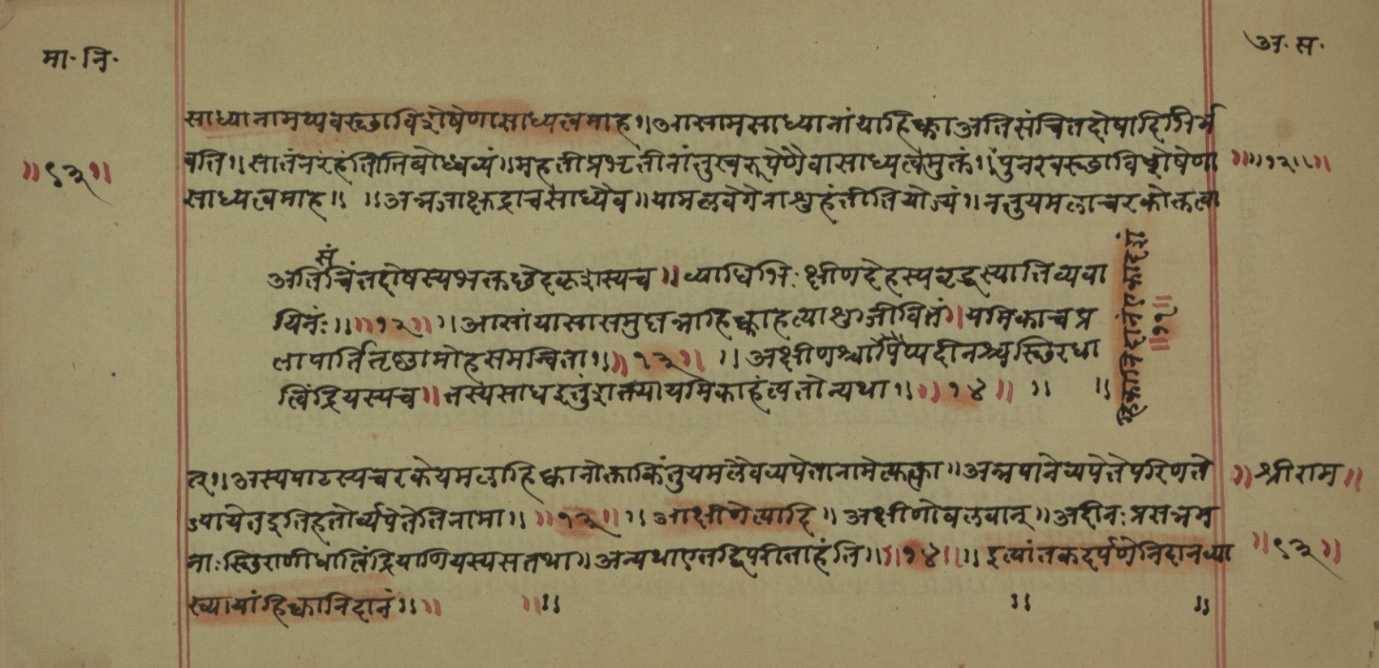 मा॰ नि॰
अ॰ स॰
साध्यानामप्यवस्छाविशेषेणासाध्यत्वमाह॥आसामसाध्यानांयाहिक्काअतिसंचितदोषादिभिर्भ
वति॥सातंनरंहंतीतिबोध्धव्यं॥महतीप्रभृतीनांतुस्वरूपेणैवासाध्यत्वमुक्तं॥पुनरवस्छाविशेषेणा
॥९३॥
साध्यत्वमाह॥ ॥अन्नजाक्षुद्राचसाध्यैव॥यामलवेगेनाशुहंतीतियोज्यं॥नतुयमलाचरकोक्तत्वा
अतिसंचितदोषस्यभक्तछेदकृशस्यच॥व्याधिभिःक्षीणदेहस्यवृद्धस्यातिव्यवा
यिनः॥॥१२॥॥आसांयासासमुत्पन्नाहिक्काहंत्याशुजीवितं॥यमिकाचप्र
लापार्तितृष्णामोहसमन्विता॥॥१३॥ ॥अक्षीणश्चाप्यदीनश्चस्छिरधा
त्विंद्रियस्यच॥तस्यसाधइतुंशक्यायमिकाहंत्यतोन्यथा॥॥१४॥ ॥ ॥
हिक्कानिदानंएकादशं
॥११॥
त्॥अस्यपाठस्यचरकेयमलाहिक्कानोक्ताकिंतुयमलैवव्यपेतानामेत्युक्त्वा॥अन्नपानेव्यपेतेपरिणते
॥श्रीराम॥
ऽपायेतद्गतिहतोर्व्यपेतेतिनामा॥ ॥१३॥ ॥अक्षीणेत्यादि॥अक्षीणोबलवान्॥अदीनःप्रसन्नम
नाःस्छिराणीधात्विंद्रियाणियस्यसतथा॥अन्यथाएतद्विपरीताहंति॥॥१४॥॥इत्यांतकदर्पणेनिदानव्या
॥९३॥
ख्यायांहिक्कानिदानं॥॥ ॥॥ ॥ ॥